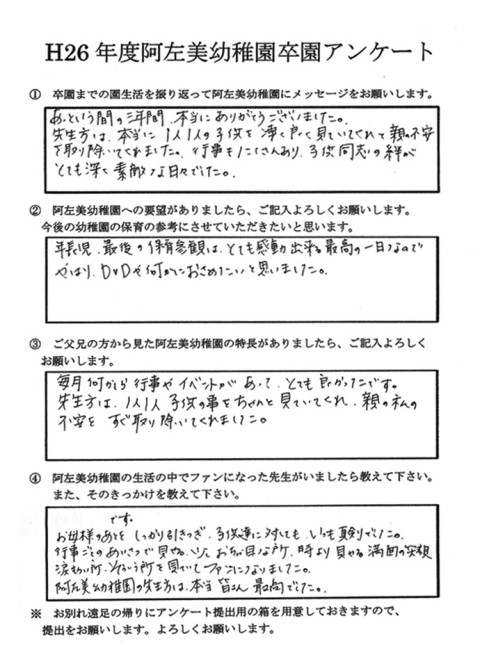 H26 年度阿左美幼稚園卒園アンケート
① 卒園までの園生活を振り返って阿左美幼稚園にメッセージをお願いします。
あっという間の三年間、本当にありがとうございました。
先生方は、本当に1人1人の子供を凄く良く見ていてくれて親の不安
を取り除いてくれました。行事もたくさんあり、子供同志の絆が
とても深く素敵な日々でした。
② 阿左美幼稚園への要望がありましたら、ご記入よろしくお願いします。
今後の幼稚園の保育の参考にさせていただきたいと思います。
年長児、最後の保育参観は、とても感動出来る最高の一日なので
やはり、DVDや何かにおさめたいと思いました。
③ ご父兄の方から見た阿左美幼稚園の特長がありましたら、ご記入よろしく
お願いします。
毎月何かしら行事やイベントがあって、とても良かったです。
先生方は、1人1人子供の事をちゃんと見ていてくれ、親の私の
不安を すぐ取り除いてくれました。
④ 阿左美幼稚園の生活の中でファンになった先生がいましたら教えて下さい。
また、そのきっかけを教えて下さい。
です。
お母様のあとをしっかり引きつぎ、子供達に対しても、いつも真剣でした。
行事ごとのあいさつで見せる、いつもお茶目な所、時より見せる満面の笑顔
涙もろい所、そういう所を見ていてファンになりました。
阿左美幼稚園の先生方は、本当皆さん最高でした。
※ お別れ遠足の帰りにアンケート提出用の箱を用意しておきますので、
提出をお願いします。よろしくお願いします。